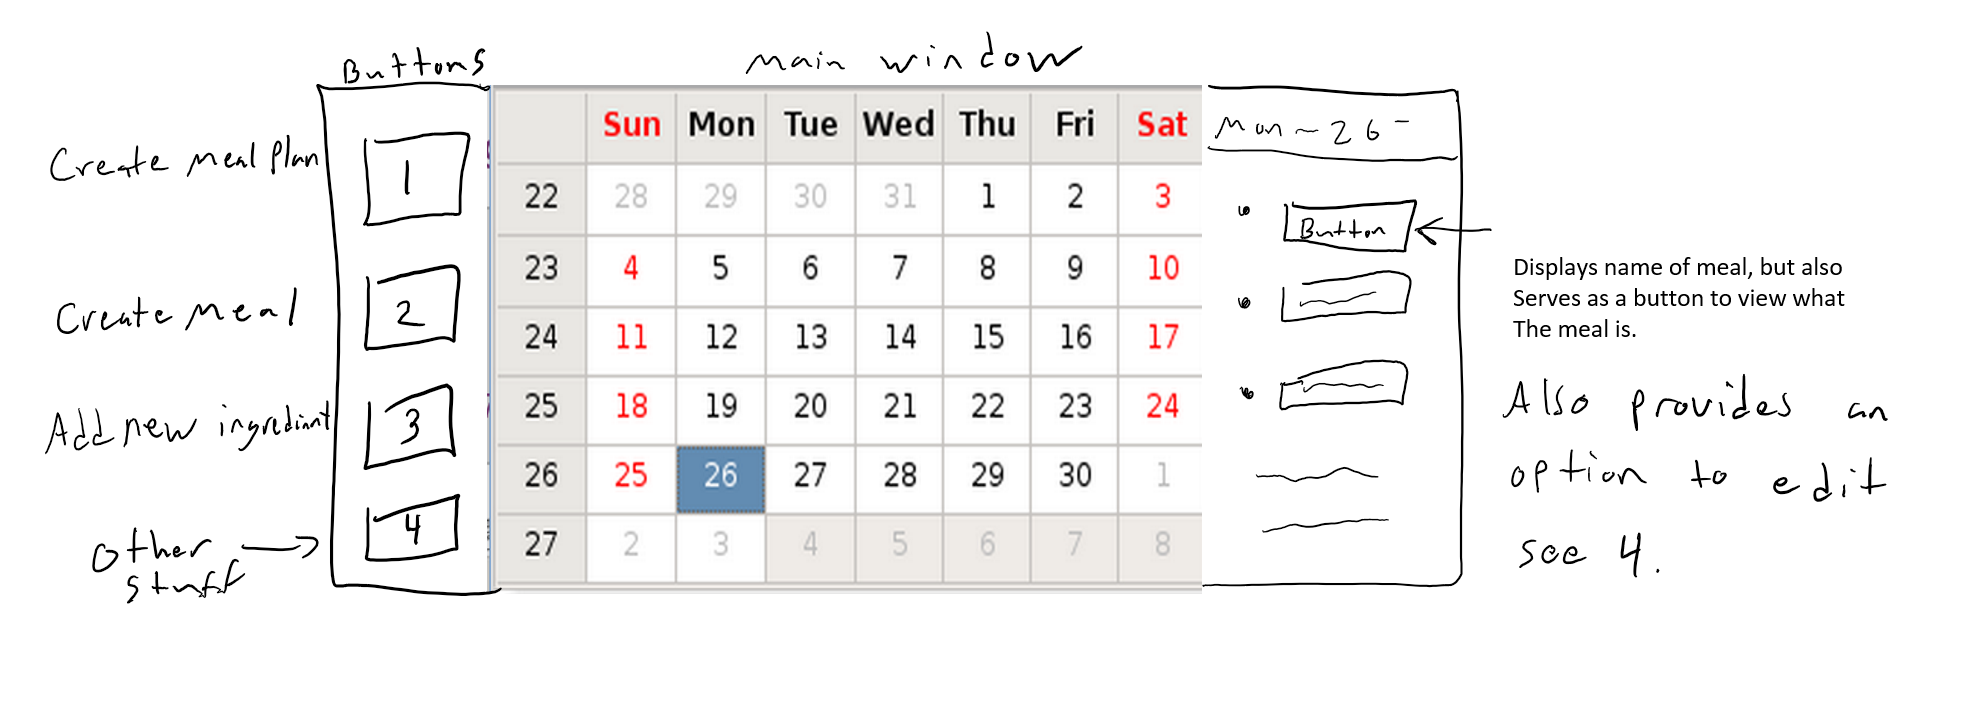 Buttons
main window
Create meal plan
1
Create meal
2
Add new ingrediant
3
Other stuff
4
Sun Mon Tue Wed Thu Fri Sat
22 28 29 30 31 1 2 3
23 4 5 6 7 8 9 10
24 11 12 13 14 15 16 17
25 18 19 20 21 22 23 24
26 25 26 27 28 29 30 1
27 2 3 4 5 6 7 8
Mon - 26 -
Button
Displays name of meal, but also
Serves as a button to view what
The meal is.
Also provides an
option to edit
see 4.